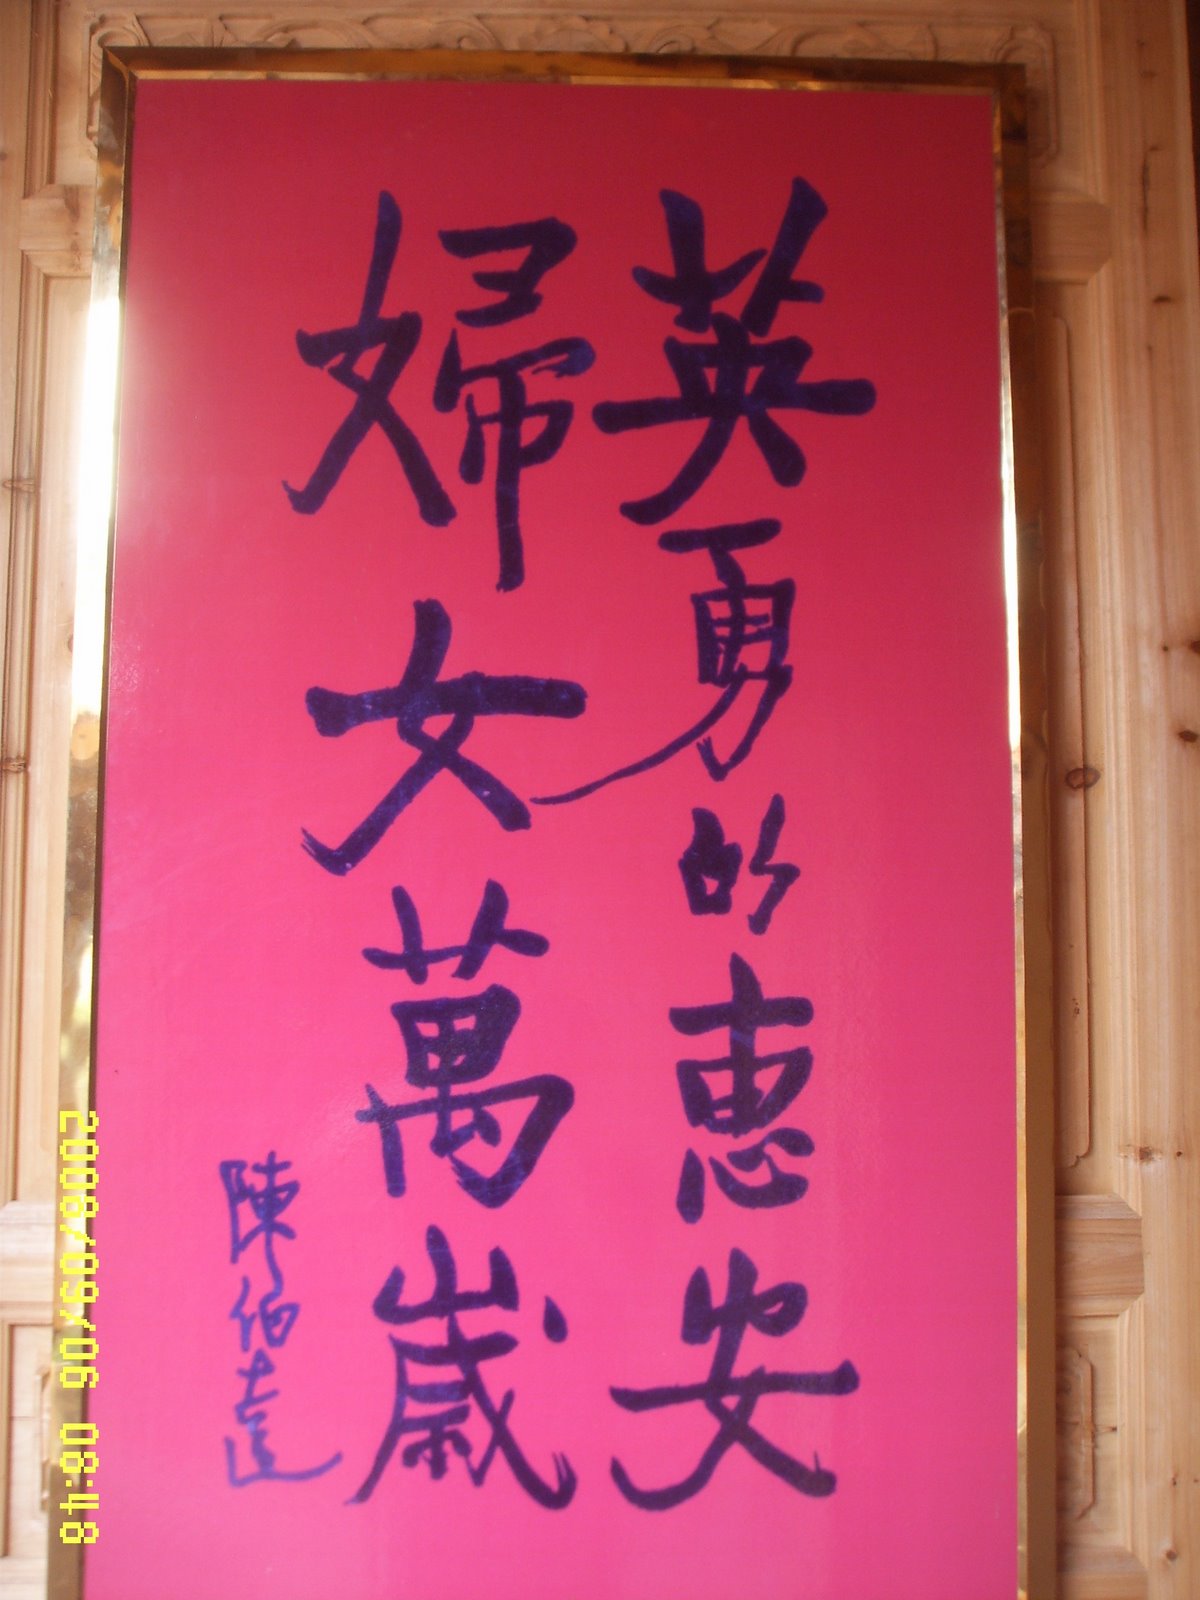 英勇的惠安
婦女萬歲
陳伯達
2008/09/06 08:48